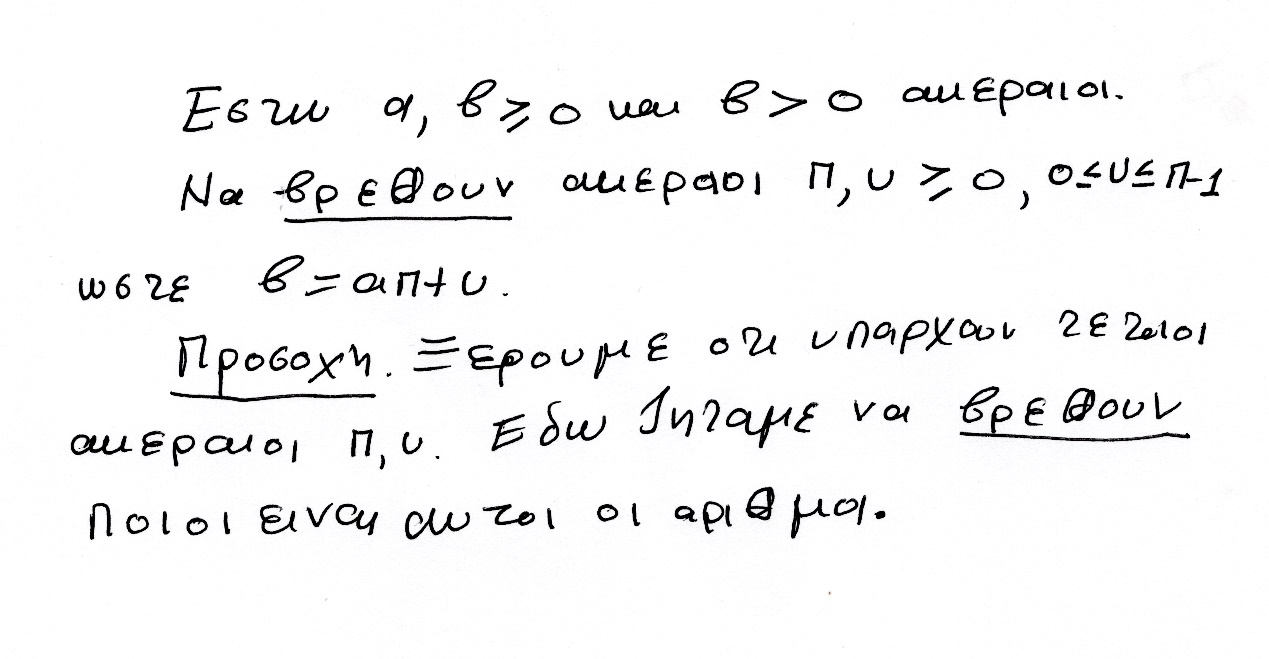 Εστω α, β ≥ 0 και β > 0 ακεραιοι.
Να βρεθουν ακεραιοι π, υ ≥ 0, 0 ≤ υ ≤ π-1
ωστε β = απ + υ.
Προσοχη. Ξερουμε οτι υπαρχουν τετοιοι
ακεραιοι π, υ. Εδω ζηταμε να βρεθουν
ποιοι ειναι αυτοι οι αριθμοι.